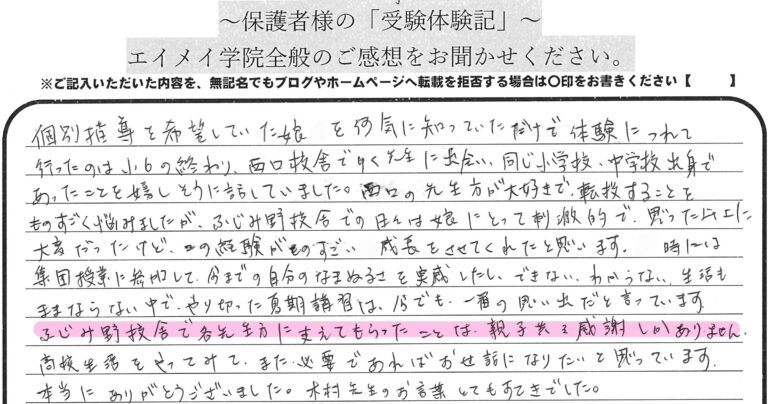 ～保護者様の「受験体験記」～
エイメイ学院全般のご感想をお聞かせください。
※ご記入いただいた内容を、無記名でもブログやホームページへ転載を拒否する場合は〇印をお書きください【　　】
個別指導を希望していた娘を何気に知っていただけで体験につれて
行ったのは小6の終わり、西口校舎で 先生に出会い、同じ小学校、中学校出身で
あったことを嬉しそうに話していました。西口の先生方が大好きで、転校することを
ものすごく悩みましたが、ふじみ野校舎での日々は娘にとって刺激的で、思った以上に
大変だったけど、この経験がものすごい 成長をさせてくれたと思います。 時には
集団授業に参加して、今までの自分のなまぬるさを実感したし、できない、わからない、生活も
ままならない中で、やり切った夏期講習は、今でも、一番の思い出だと言っています
ふじみ野校舎で各先生方に支えてもらったことは、親子共々感謝しかありません。
高校生活をやってみて、また必要であればお世話になりたいと思っています。
本当にありがとうございました。木村先生のお言葉とてもすてきでした。